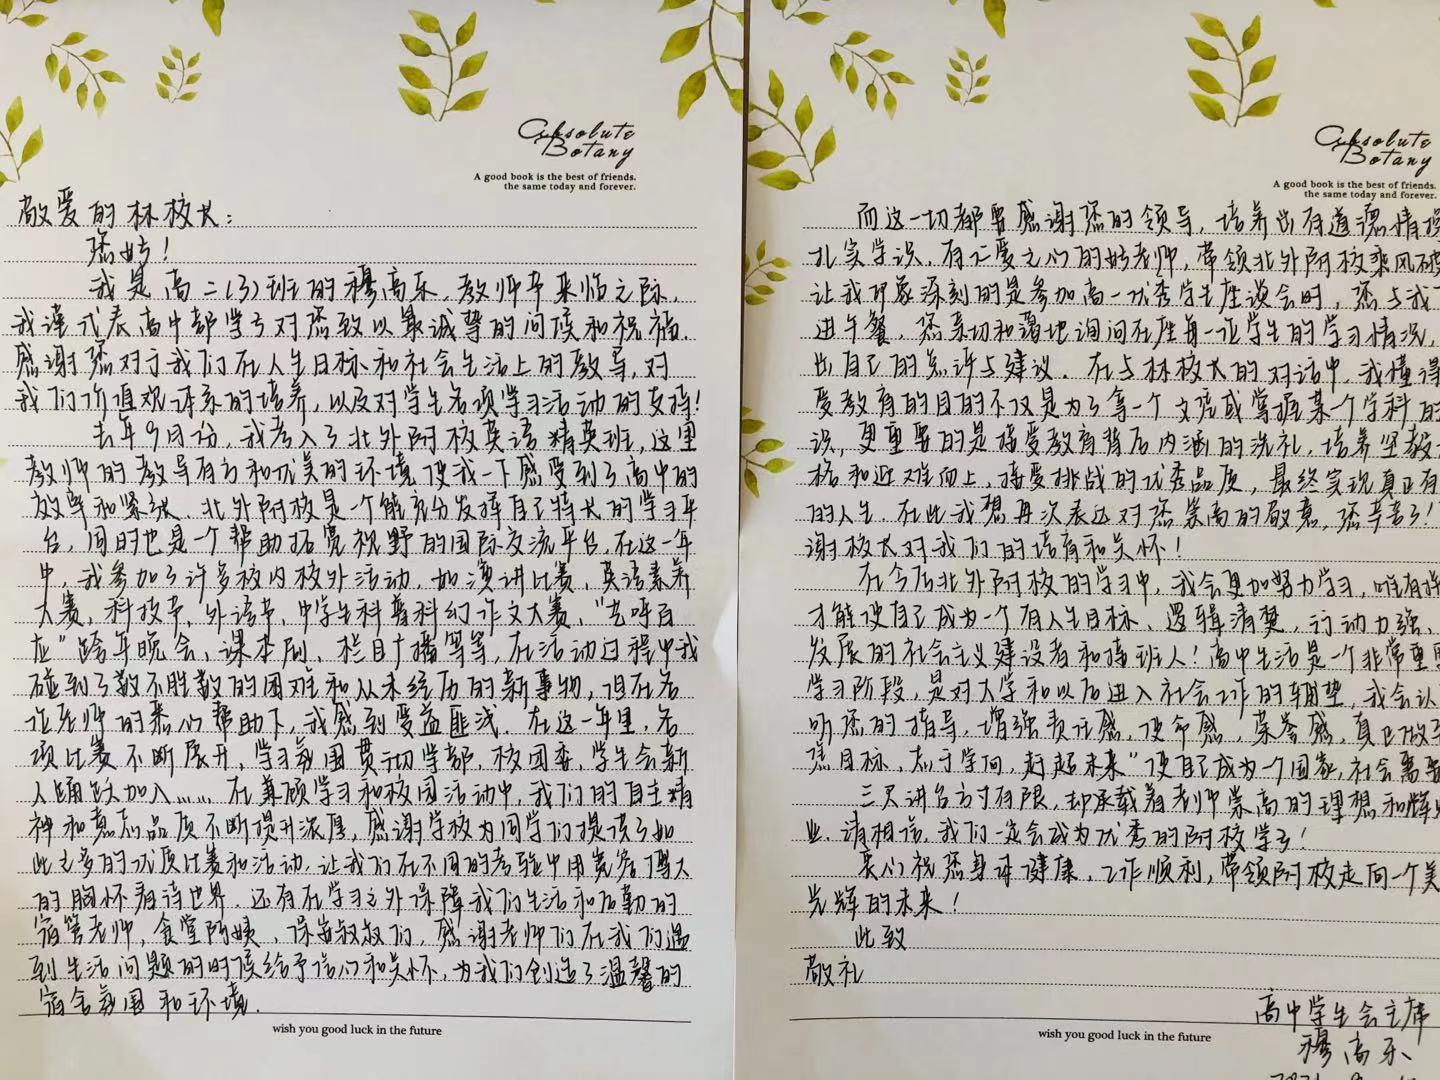 Absolute
Botany
A good book is the best of friends.
the same today and forever.
敬爱的林校长：
您好！
我是高二(3)班的穆高乐，教师节来临之际，
我谨代表高中部学子对您致以最诚挚的问候和祝福。
感谢您对于我们在人生目标和社会生活上的教导，对
我们价值观体系的培养，以及对学生各项学习活动的支持！
去年9月份，我考入了北外附校英语精英班，这里
教师的教导有方和优美的环境使我一下感受到了高中的
效率和紧张。北外附校是一个能充分发挥自己特长的学习平
台，同时也是一个帮助拓宽视野的国际交流平台，在这一年
中，我参加了许多校内校外活动，如演讲比赛，英语素养
大赛，科技节，外语节，中学生科普科幻作文大赛，“去呼百
应”跨年晚会，课本剧，栏目广播等等，在活动过程中我
碰到了数不胜数的困难和从未经历的新事物，但在各
位老师的悉心帮助下，我感到受益匪浅。在这一年里，各
项比赛不断展开，学习氛围贯彻学部，校团委，学生会新
人踊跃加入…… 在兼顾学习和校园活动中，我们的自主精
神和意志品质不断提升浓厚，感谢学校为同学们提供了如
此之多的优质比赛和活动，让我们在不同的考验中用宽容博大
的胸怀看待世界，还有在学习之外保障我们生活和后勤的
宿管老师，食堂阿姨，保安叔叔们，感谢老师们在我们遇
到生活问题的时候给予信心和关怀，为我们创造了温馨的
宿舍氛围和环境。
wish you good luck in the future
Absolute
Botany
A good book is the best of friends.
the same today and forever.
而这一切都要感谢您的领导，培养出有道德情操
扎实学识，有仁爱之心的好老师，带领北外附校乘风破
让我印象深刻的是参加高一优秀学生座谈会时，您与我
进午餐，您亲切和蔼地询问在座每一位学生的学习情况，
出自己的点评与建议。在与林校长的对话中，我懂得
受教育的目的不仅是为了拿一个文凭或掌握某一个学科的
识，更重要的是接受教育背后内涵的洗礼，培养坚毅
格和迎难而上，接受挑战的优秀品质，最终实现真正有
的人生。在此我想再次表达对您崇高的敬意，您辛苦了！
谢校长对我们的培育和关怀！
在今后北外附校的学习中，我会更加努力学习，唯有
才能使自己成为一个有人生目标、逻辑清楚，行动力强、
发展的社会主义建设者和接班人！高中生活是一个非常重要
学习阶段，是对大学和以后进入社会工作的铺垫，我会认
听您的指导，增强责任感，使命感，荣誉感，真正做到
焦目标，志于学问，赶超未来”使自己成为一个国家，社会需要
三尺讲台方寸有限，却承载着老师崇高的理想和辉
业。请相信，我们一定会成为优秀的附校学子！
衷心祝您身体健康，工作顺利，带领附校走向一个美
光辉的未来！
此致
敬礼
高中学生会主席
穆高乐
wish you good luck in the future